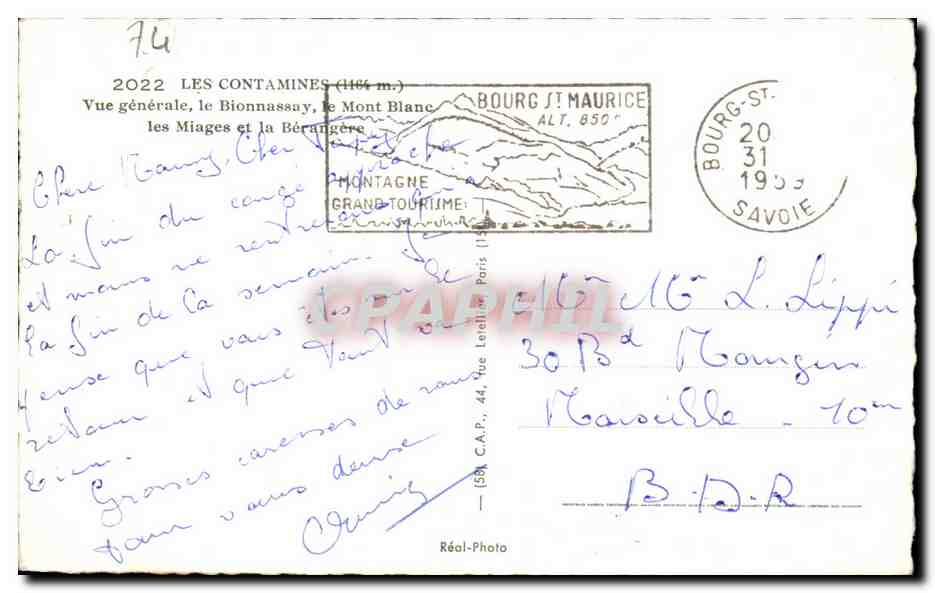 74
2022 LES CONTAMINES (1164 m.)
Vue générale, le Bionnassay, le Mont Blanc
les Miages et la Bérangère
BOURG ST MAURICE
ALT. 850m
MONTAGNE
GRAND TOURISME
BOURG-ST-
20
31
1959
SAVOIE
Chère Mamy, Cher Papy
La fin du congé approche
et nous ne rentrerons
la fin de la semaine. Je
pense que vous êtes sur le
retour et que tout va
bien.
Grosses caresses de nous
pour vous deux
CPARPHIL
(58) C.A.P., 44, rue Letellier, Paris (15
Réal-Photo
Mme Mr L. Lippi
30 Bd Mangin
Marseille - 10em
B.D.R